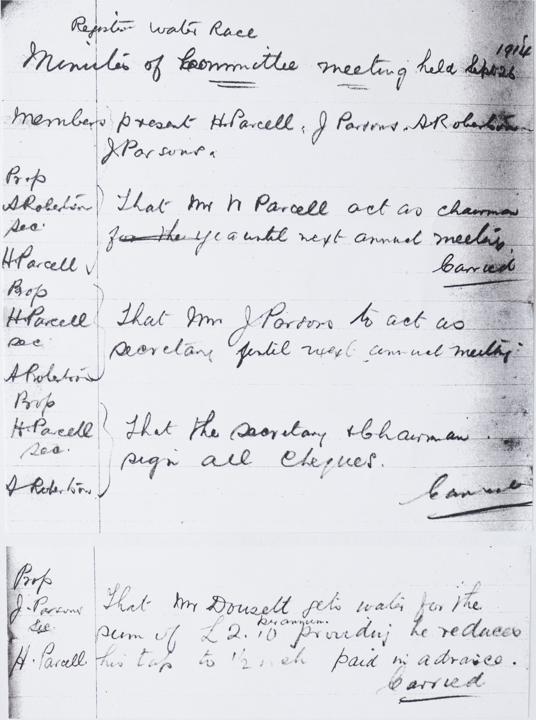 Register Water Race
1914
Minutes of Committee meeting held Sept 26
Members present H Parcell, J Parsons. A Robertson
J Parsons.
Prop
A Robertson
Sec.
H Parcell
That Mr N Parcell act as chairman
for the yea until next annual meeting.
Carried
Prop
H Parcell
sec
A Robertson
That Mr J Parsons to act as
secretary until next annual meeting.
Prop
H Parcell
Sec.
A Robertson
That the secretary & Chairman
sign all Cheques.
Carried
Prop
J. Parsons
Sec
H. Parcell
That Mr Dousett gets water for the
sum of £2.10 per annum. providing he reduces
his tap to ½ inch paid in advance.
Carried